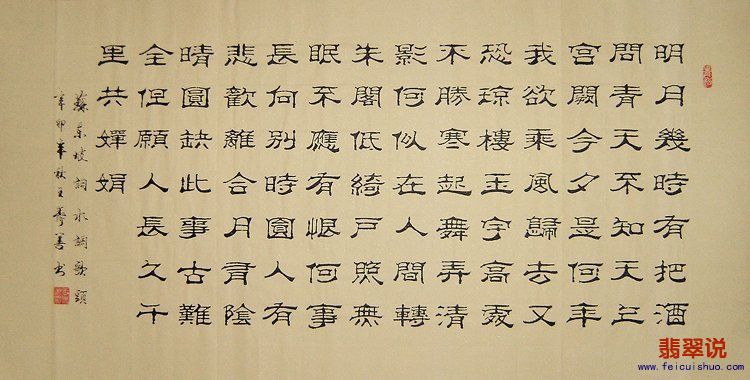 明月幾時有把酒
問青天不知天上
宮闕今夕是何年
我欲乘風歸去又
恐瓊樓玉宇高處
不勝寒起舞弄清
影何似在人間轉
朱閣低綺戶照無
眠不應有恨何事
長向別時圓人有
悲歡離合月有陰
晴圓缺此事古難
全但願人長久千
里共嬋娟
蘇東坡詞水調歌頭
辛卯年秋王善书
翡翠说
www.feicuishuo.com